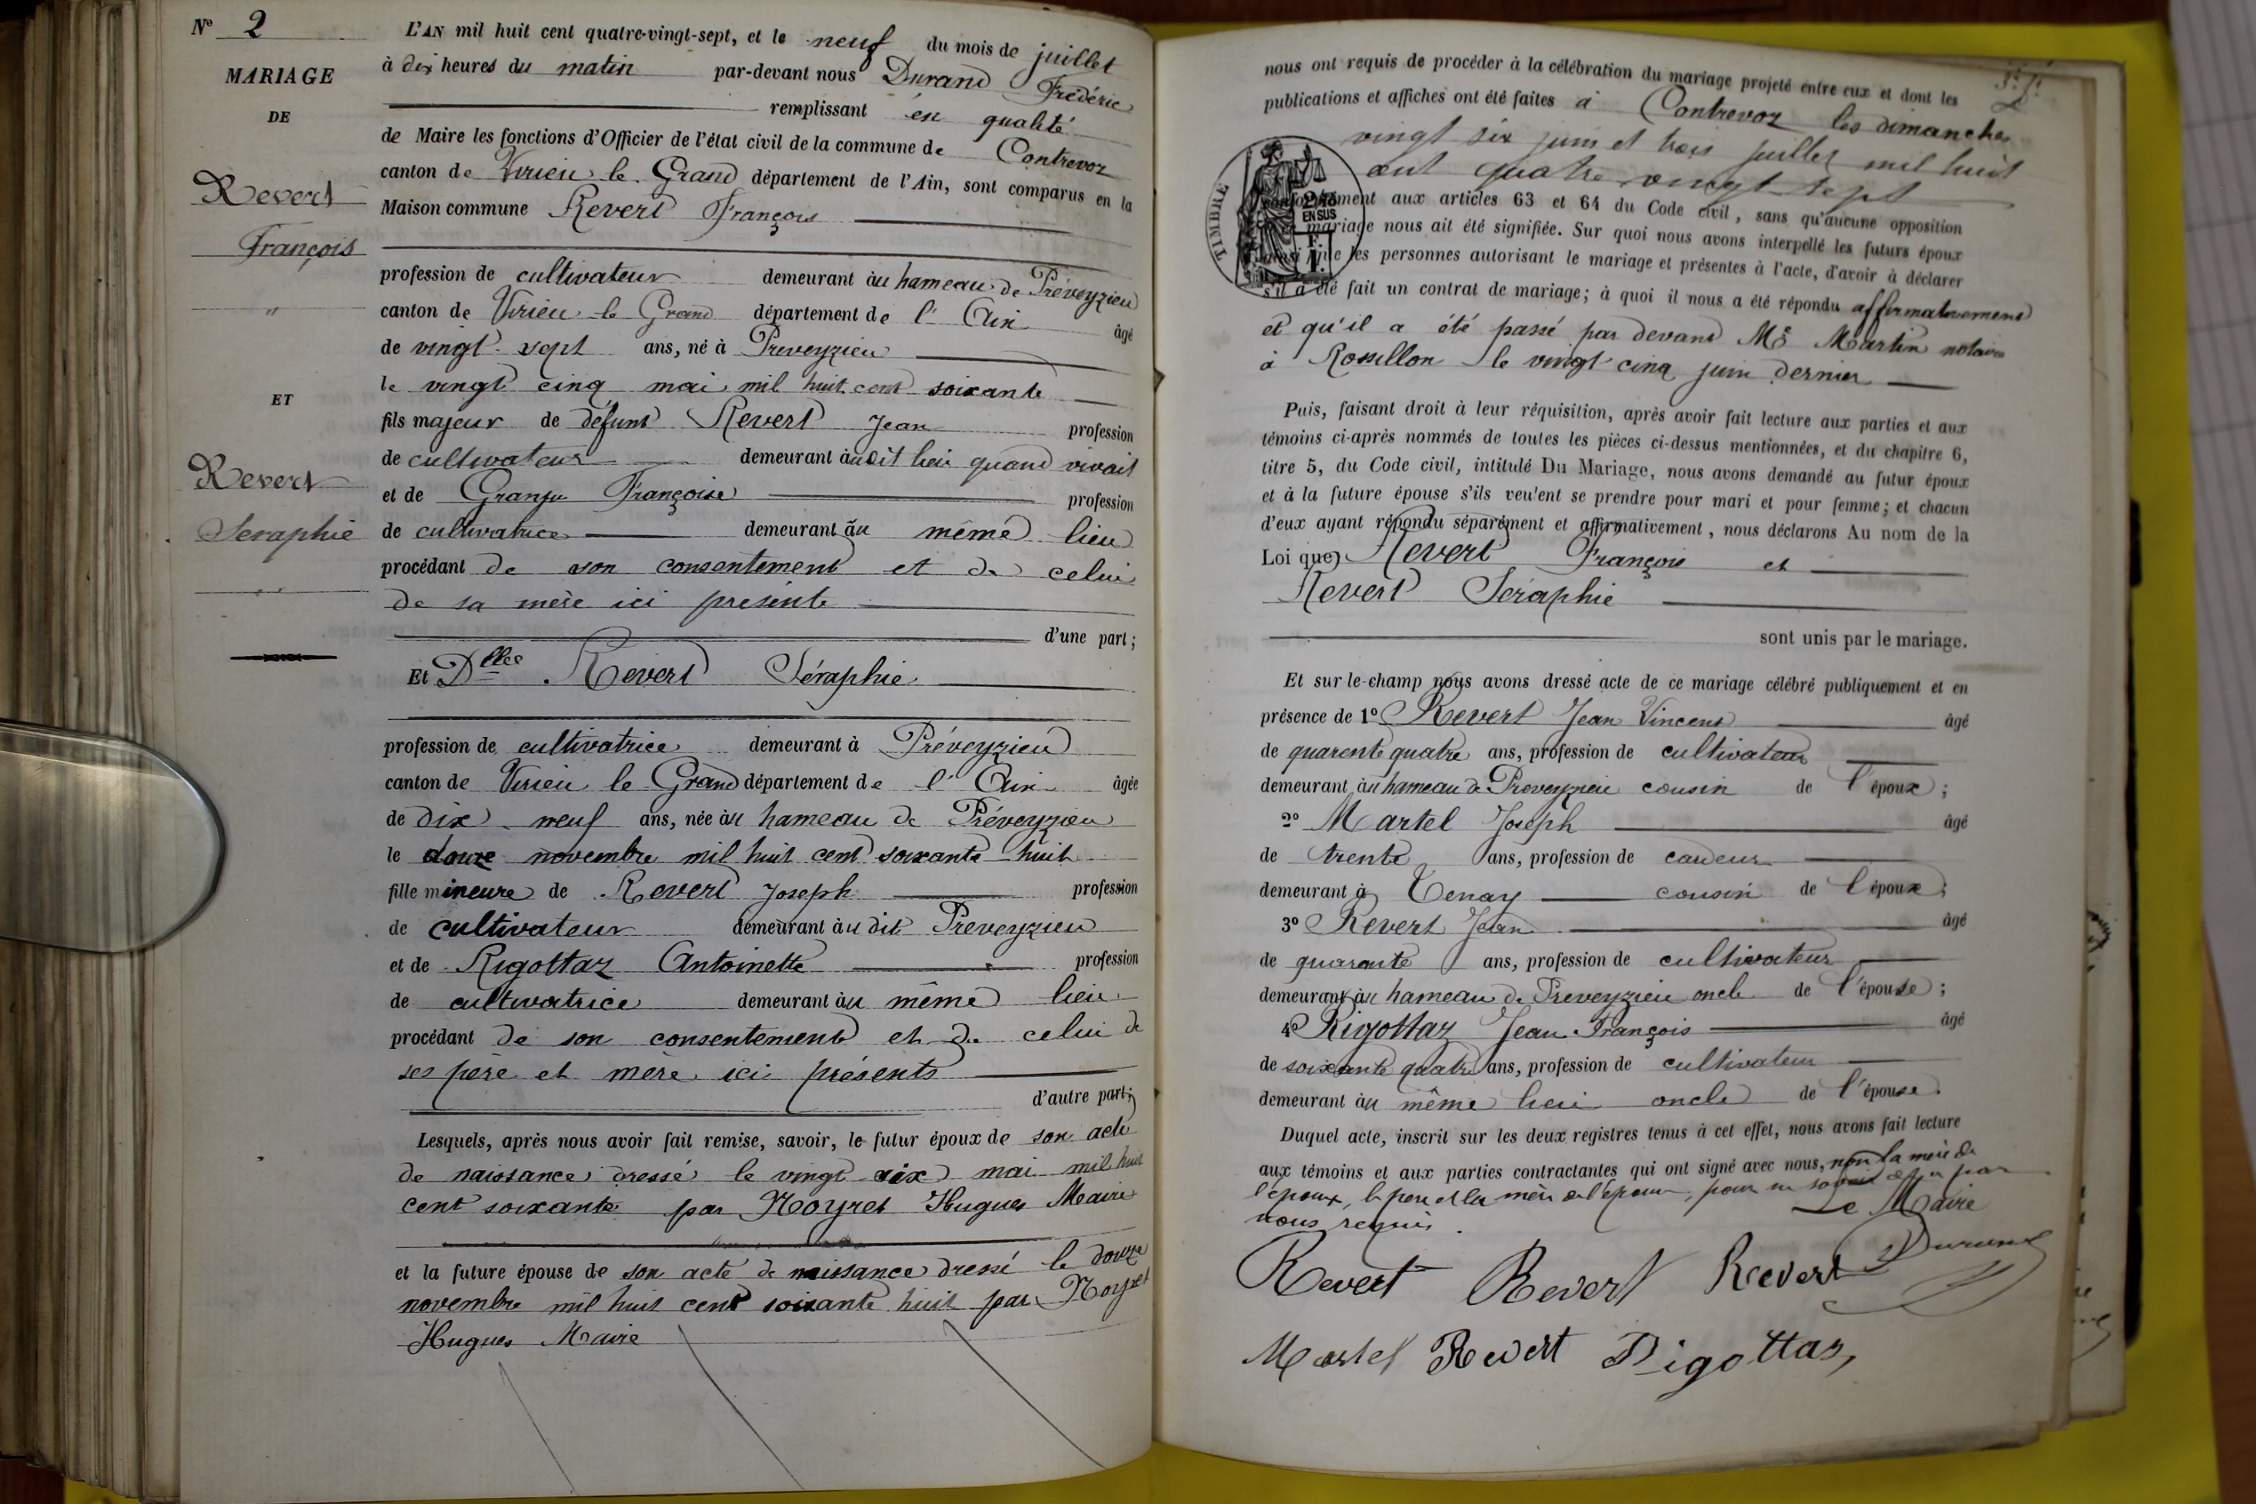 N° 2
MARIAGE
DE
Revert
François
"
ET
Revert
Seraphie
" "
L'AN mil huit cent quatre-vingt-sept, et le neuf du mois de juillet
à dix heures du matin par-devant nous Durand Frédéric
remplissant en qualité
de Maire les fonctions d'Officier de l'état civil de la commune de Contrevoz
canton de Virieu le Grand département de l'Ain, sont comparus en la
Maison commune Revert François
profession de cultivateur demeurant au hameau de Préveyzieu
canton de Virieu le Grand département de l'Ain âgé
de vingt-sept ans, né à Preveyzieu
le vingt cinq mai mil huit cent soixante
fils majeur de défunt Revert Jean profession
de cultivateur demeurant au dit lieu quand vivait
et de Françoise profession
de cultivatrice demeurant au même lieu
procédant de son consentement et de celui
de sa mère ici présente
d'une part;
Et Dlle Revert Séraphie
profession de cultivatrice demeurant à Préveyzieu
canton de Virieu le Grand département de l'Ain âgée
de dix neuf ans, née au hameau de Préveyzieu
le douze novembre mil huit cent soixante huit
fille mineure de Revert Joseph profession
de cultivateur demeurant au dit Preveyzieu
et de Rigottaz Antoinette profession
de cultivatrice demeurant au même lieu
procédant de son consentement et de celui de
ses père et mère ici présents
d'autre part;
Lesquels, après nous avoir fait remise, savoir, le futur époux de son acte
de naissance dressé le vingt six mai mil huit
cent soixante par Noyret Hugues Maire
et la future épouse de son acte de naissance dressé le douze
novembre mil huit cent soixante huit par Noyret
Hugues Maire
nous ont requis de procéder à la célébration du mariage projeté entre eux et dont les
publications et affiches ont été faites à Contrevoz les dimanches
vingt six juin et trois juillet mil huit
cent quatre vingt sept
TIMBRE
2/10
EN SUS
conformément aux articles 63 et 64 du Code civil, sans qu'aucune opposition
mariage nous ait été signifiée. Sur quoi nous avons interpellé les futurs époux
ainsi que les personnes autorisant le mariage et présentes à l'acte, d'avoir à déclarer
s'il a été fait un contrat de mariage; à quoi il nous a été répondu affirmativement
et qu'il a été passé par devant Me Martin notaire
à Rossillon le vingt cinq juin dernier
Puis, faisant droit à leur réquisition, après avoir fait lecture aux parties et aux
témoins ci-après nommés de toutes les pièces ci-dessus mentionnées, et du chapitre 6,
titre 5, du Code civil, intitulé Du Mariage, nous avons demandé au futur époux
et à la future épouse s'ils veulent se prendre pour mari et pour femme; et chacun
d'eux ayant répondu séparément et affirmativement, nous déclarons Au nom de la
Loi que Revert François et
Revert Séraphie
sont unis par le mariage.
Et sur-le-champ nous avons dressé acte de ce mariage célébré publiquement et en
présence de 1° Revert Jean Vincent âgé
de quarente quatre ans, profession de cultivateur
demeurant au hameau de Preveyzieu cousin de l'époux;
2° Martel Joseph âgé
de trente ans, profession de cardeur
demeurant à Tenay cousin de l'époux;
3° Revert Jean âgé
de quarante ans, profession de cultivateur
demeurant au hameau de Preveyzieu oncle de l'épouse;
4° Rigottaz Jean François âgé
de soixante quatre ans, profession de cultivateur
demeurant au même lieu oncle de l'épouse.
Duquel acte, inscrit sur les deux registres tenus à cet effet, nous avons fait lecture
aux témoins et aux parties contractantes qui ont signé avec nous, non la mère de
l'époux, le père et la mère de l'épouse, pour ne savoir de ce par
nous requis.
Le Maire
Revert Revert Revert Durand
Martel Revert Rigottaz